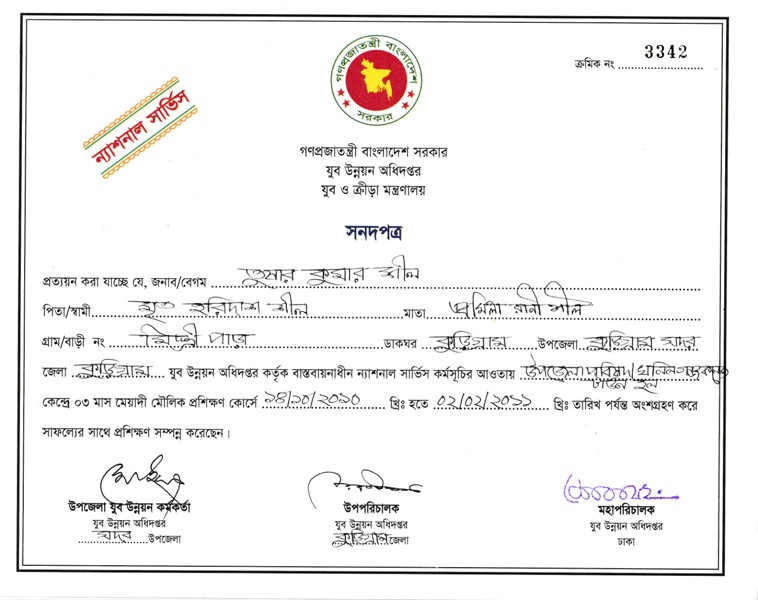 ক্রমিক নং 3342
গণপ্রজাতন্ত্রী বাংলাদেশ
সরকার
ন্যাশনাল সার্ভিস
গণপ্রজাতন্ত্রী বাংলাদেশ সরকার
যুব উন্নয়ন অধিদপ্তর
যুব ও ক্রীড়া মন্ত্রণালয়
সনদপত্র
প্রত্যয়ন করা যাচ্ছে যে, জনাব/বেগম তুষার কুমার শীল
পিতা/স্বামী মৃত হরিদাশ শীল মাতা প্রমিলা রানী শীল
গ্রাম/বাড়ী নং মিস্ত্রী পাড়া ডাকঘর কুড়িগ্রাম উপজেলা কুড়িগ্রাম সদর
জেলা কুড়িগ্রাম যুব উন্নয়ন অধিদপ্তর কর্তৃক বাস্তবায়নাধীন ন্যাশনাল সার্ভিস কর্মসূচির আওতায় উপজেলা পরিষদ/
কেন্দ্রে ০৩ মাস মেয়াদী মৌলিক প্রশিক্ষণ কোর্সে ১৪/১০/২০১০ খ্রিঃ হতে ০২/০২/২০১১ খ্রিঃ তারিখ পর্যন্ত অংশগ্রহণ করে
সাফল্যের সাথে প্রশিক্ষণ সম্পন্ন করেছেন।
উপজেলা যুব উন্নয়ন কর্মকর্তা
যুব উন্নয়ন অধিদপ্তর
সদর উপজেলা
উপপরিচালক
যুব উন্নয়ন অধিদপ্তর
কুড়িগ্রাম জেলা
মহাপরিচালক
যুব উন্নয়ন অধিদপ্তর
ঢাকা